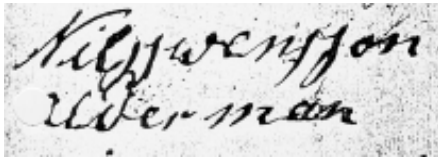 Nils Swensson
Ulderman